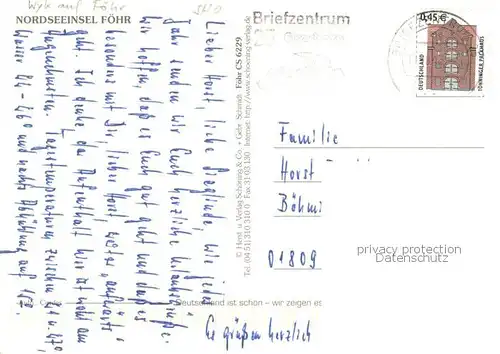 Wyk auf Föhr
NORDSEEINSEL FÖHR
Lieber Horst, liebe Sieglinde, wie jedes
Jahr senden wir Euch herzliche Urlaubsgrüße.
Wir hoffen, daß es Euch gut geht und daß es
besonders mit Dir, lieber Horst, weiter „aufwärts"
geht. Ich denke, der Aufenthalt hier ist wohl am
angenehmsten. Tagestemperaturen zwischen 21 u.
Wasser und nachts Abkühlung auf
Es grüßen herzlich
Deutschland ist schön – wir zeigen es
© Herst. u. Verlag Schöning & Co. + Gebr. Schmidt
Föhr CS 6229
Tel. (04 51) 310 310 0 Fax 31 03 130 Internet: http://www.schoening-verlag.de
Briefzentrum
0,45 €
DEUTSCHLAND
TÖNNINGER PACKHAUS
Familie
Horst
Böhm
01809
privacy protection
Datenschutz